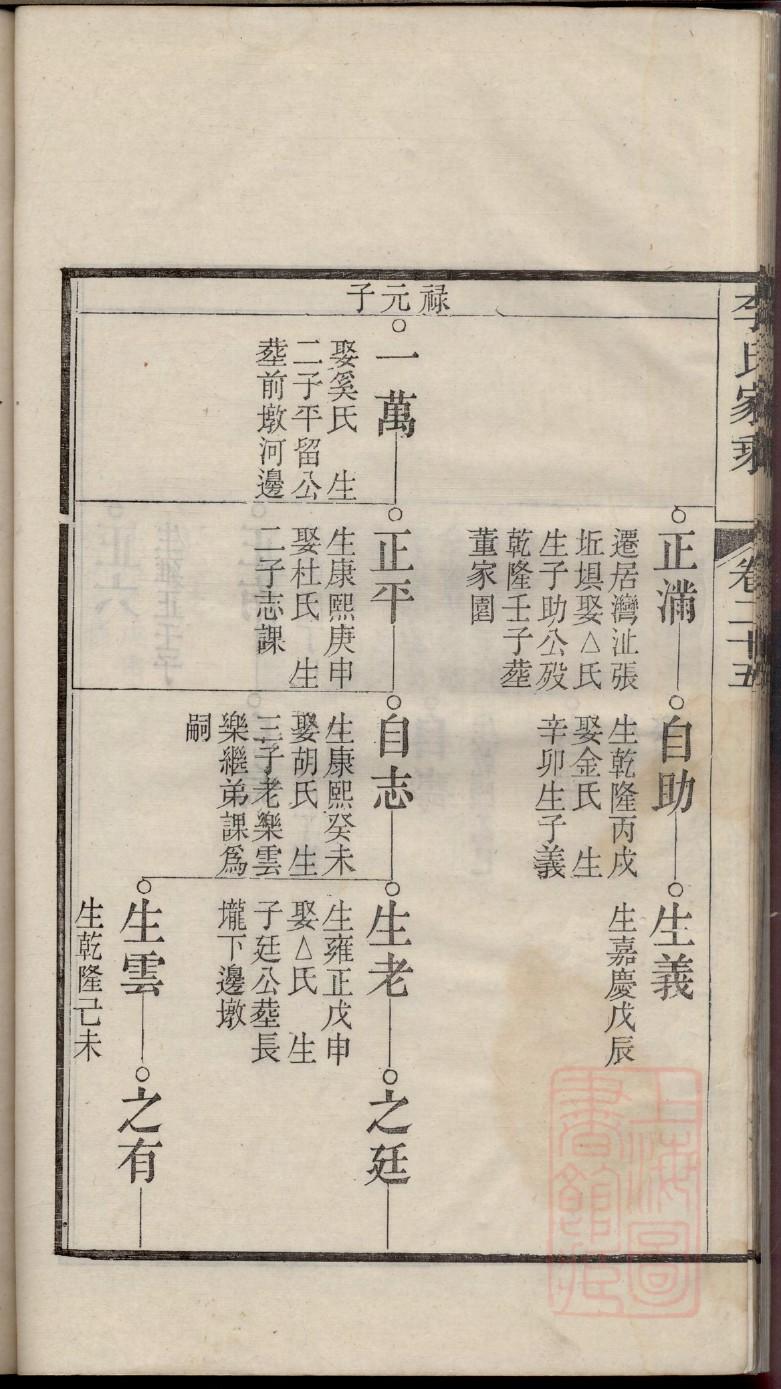 李氏家乘
卷二十五
正滿
遷居灣沚張
坵垻娶△氏
生子助公歿
乾隆壬子塟
董家圍
自助
生乾隆丙戌
娶金氏 生
辛卯生子義
生義
生嘉慶戊辰
祿元子
一萬
娶奚氏 生
二子平留公
塟前墩河邊
正平
生康熙庚申
娶杜氏 生
二子志課
自志
生康熙癸未
娶胡氏 生
三子老樂雲
樂繼弟課爲
嗣
生老
生雍正戊申
娶△氏 生
子廷公塟長
壠下邊墩
之廷
生雲
生乾隆己未
之有
上海圖
書館藏